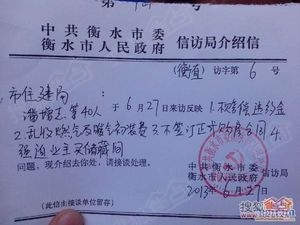 中共衡水市委
衡水市人民政府 信访局介绍信
(衡信) 访字第 6 号
市住建局:
潘增志 等40人 于 6 月 27 日来访反映 1.不赔偿违约金
2.乱收燃气及暖气初装费 3.不签订正式购房合同 4.
强迫业主买储藏间
问题,现介绍去你处,请接谈处理。
中共衡水市委
衡水市人民政府 信访局
2013年 6 月 27 日
(此信由接谈单位留存)
搜狐焦点